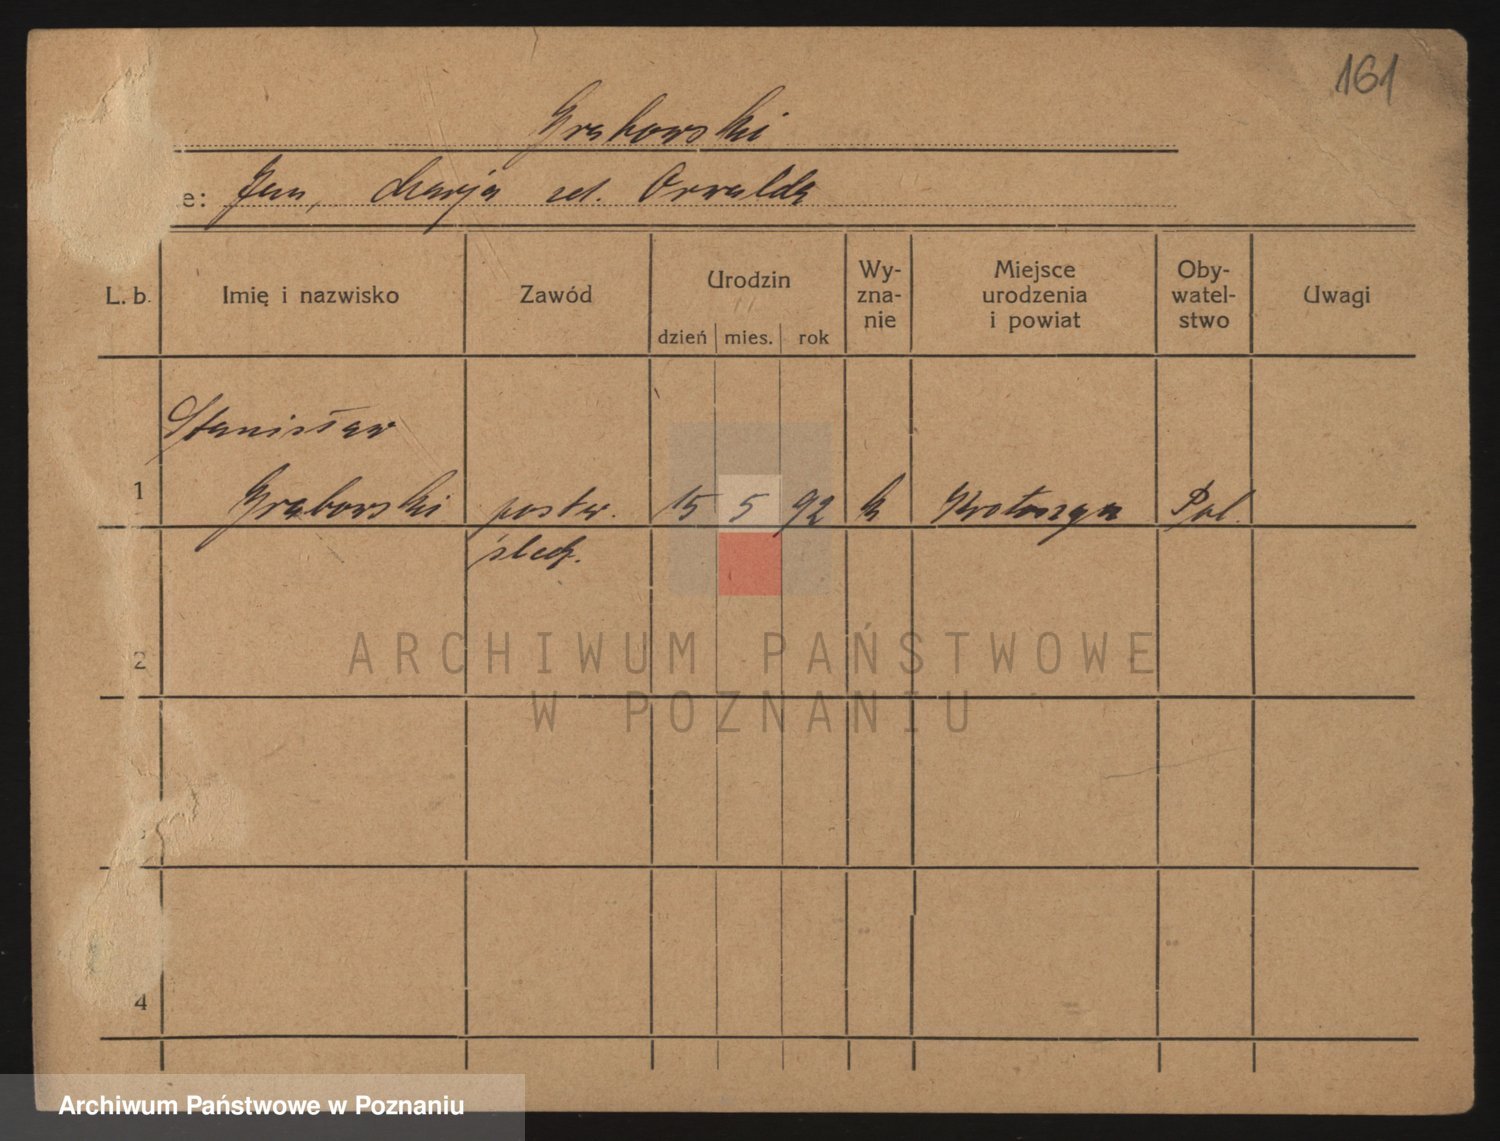 161
Grabowski
e: Jan, Marja zd. Orwalda
L. b. Imię i nazwisko Zawód Urodzin dzień mies. rok Wy-zna-nie Miejsce urodzenia i powiat Oby-watel-stwo Uwagi
Stanisław
1 Grabowski postw. 15 5 92 k Krotoszyn Pol.
śled.
2
ARCHIWUM PAŃSTWOWE
W POZNANIU
4
Archiwum Państwowe w Poznaniu